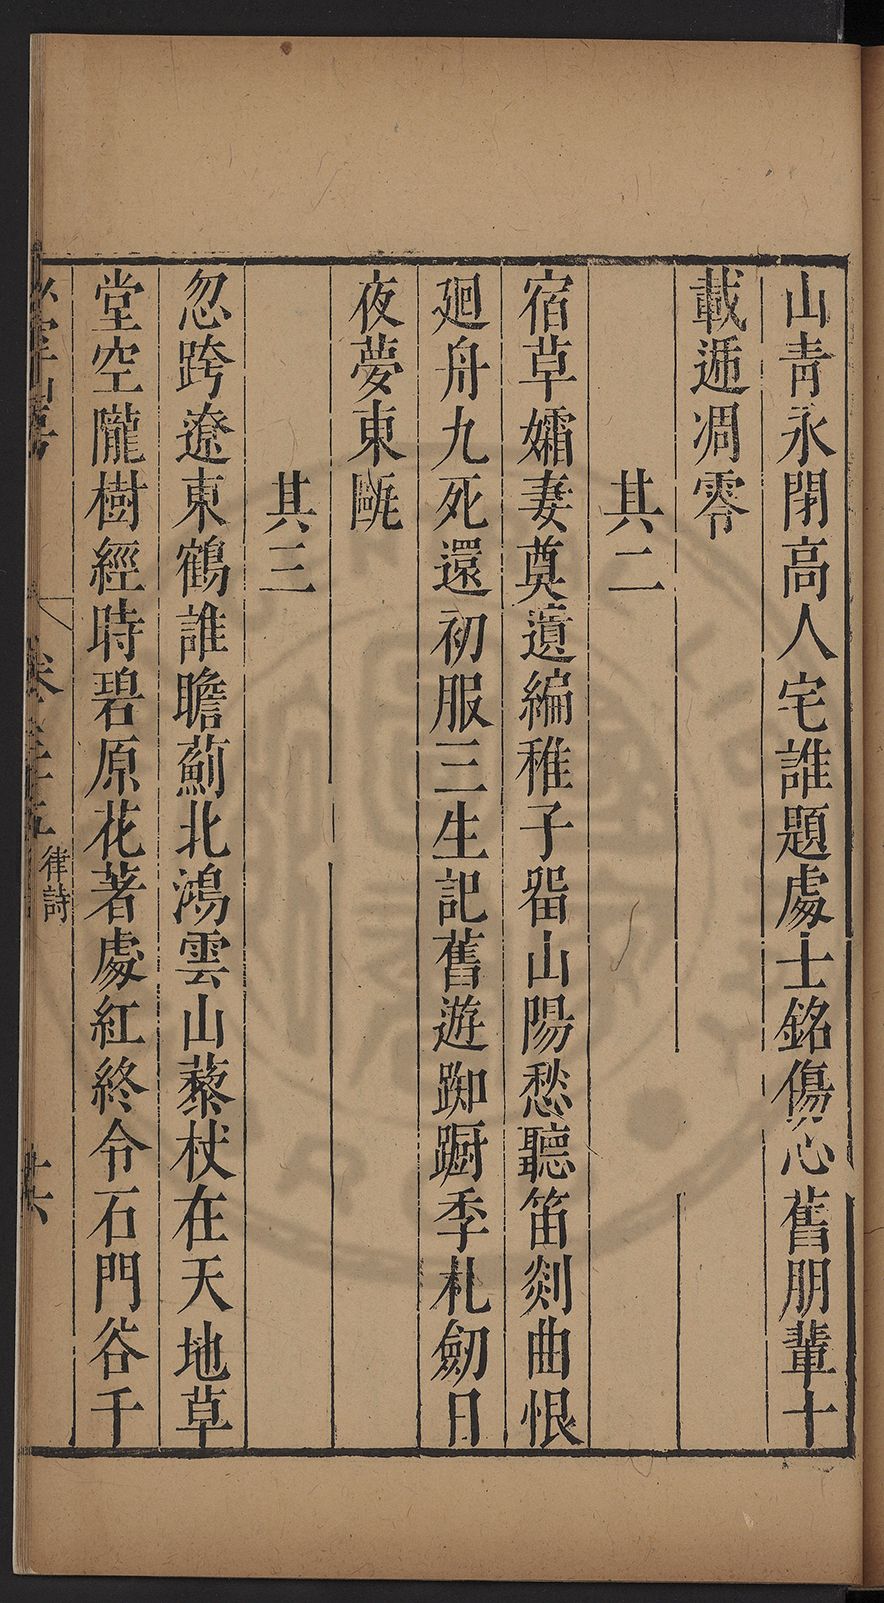 山青永閉高人宅誰題處士銘傷心舊朋輩十
載遞凋零
其二
宿草孀妻奠遺編稚子畱山陽愁聽笛剡曲恨
廻舟九死還初服三生記舊遊踟蹰季札劒日
夜夢東甌
其三
忽跨遼東鶴誰瞻薊北鴻雲山藜杖在天地草
堂空隴樹經時碧原花著處紅終令石門谷千
律詩